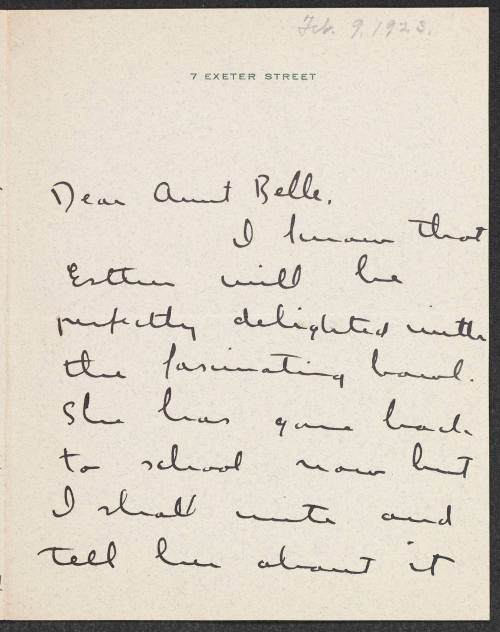 Feb. 9, 1923.
7 EXETER STREET
Dear Aunt Belle,
I know that
Esther will be
perfectly delighted with
the fascinating bowl.
She has gone back
to school now but
I shall write and
tell her about it